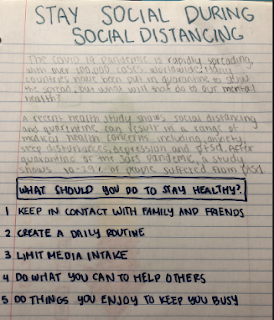 STAY SOCIAL DURING
SOCIAL DISTANCING
The covid 19 pandemic is rapidly spreading,
with over 100,000 cases worldwide.
countries have been put in quarantine to slow
the spread, but what will that do to our mental
health?
A recent health study shows social distancing
and quarantine can result in a range of
medical health concerns including, anxiety,
sleep disturbances, depression and PTSD. After
quarantine of the SARS pandemic, a study
shows 10-29% of people suffered from PTSD
WHAT SHOULD YOU DO TO STAY HEALTHY?
1 KEEP IN CONTACT WITH FAMILY AND FRIENDS
2 CREATE A DAILY ROUTINE
3 LIMIT MEDIA INTAKE
4 DO WHAT YOU CAN TO HELP OTHERS
5 DO THINGS YOU ENJOY TO KEEP YOU BUSY